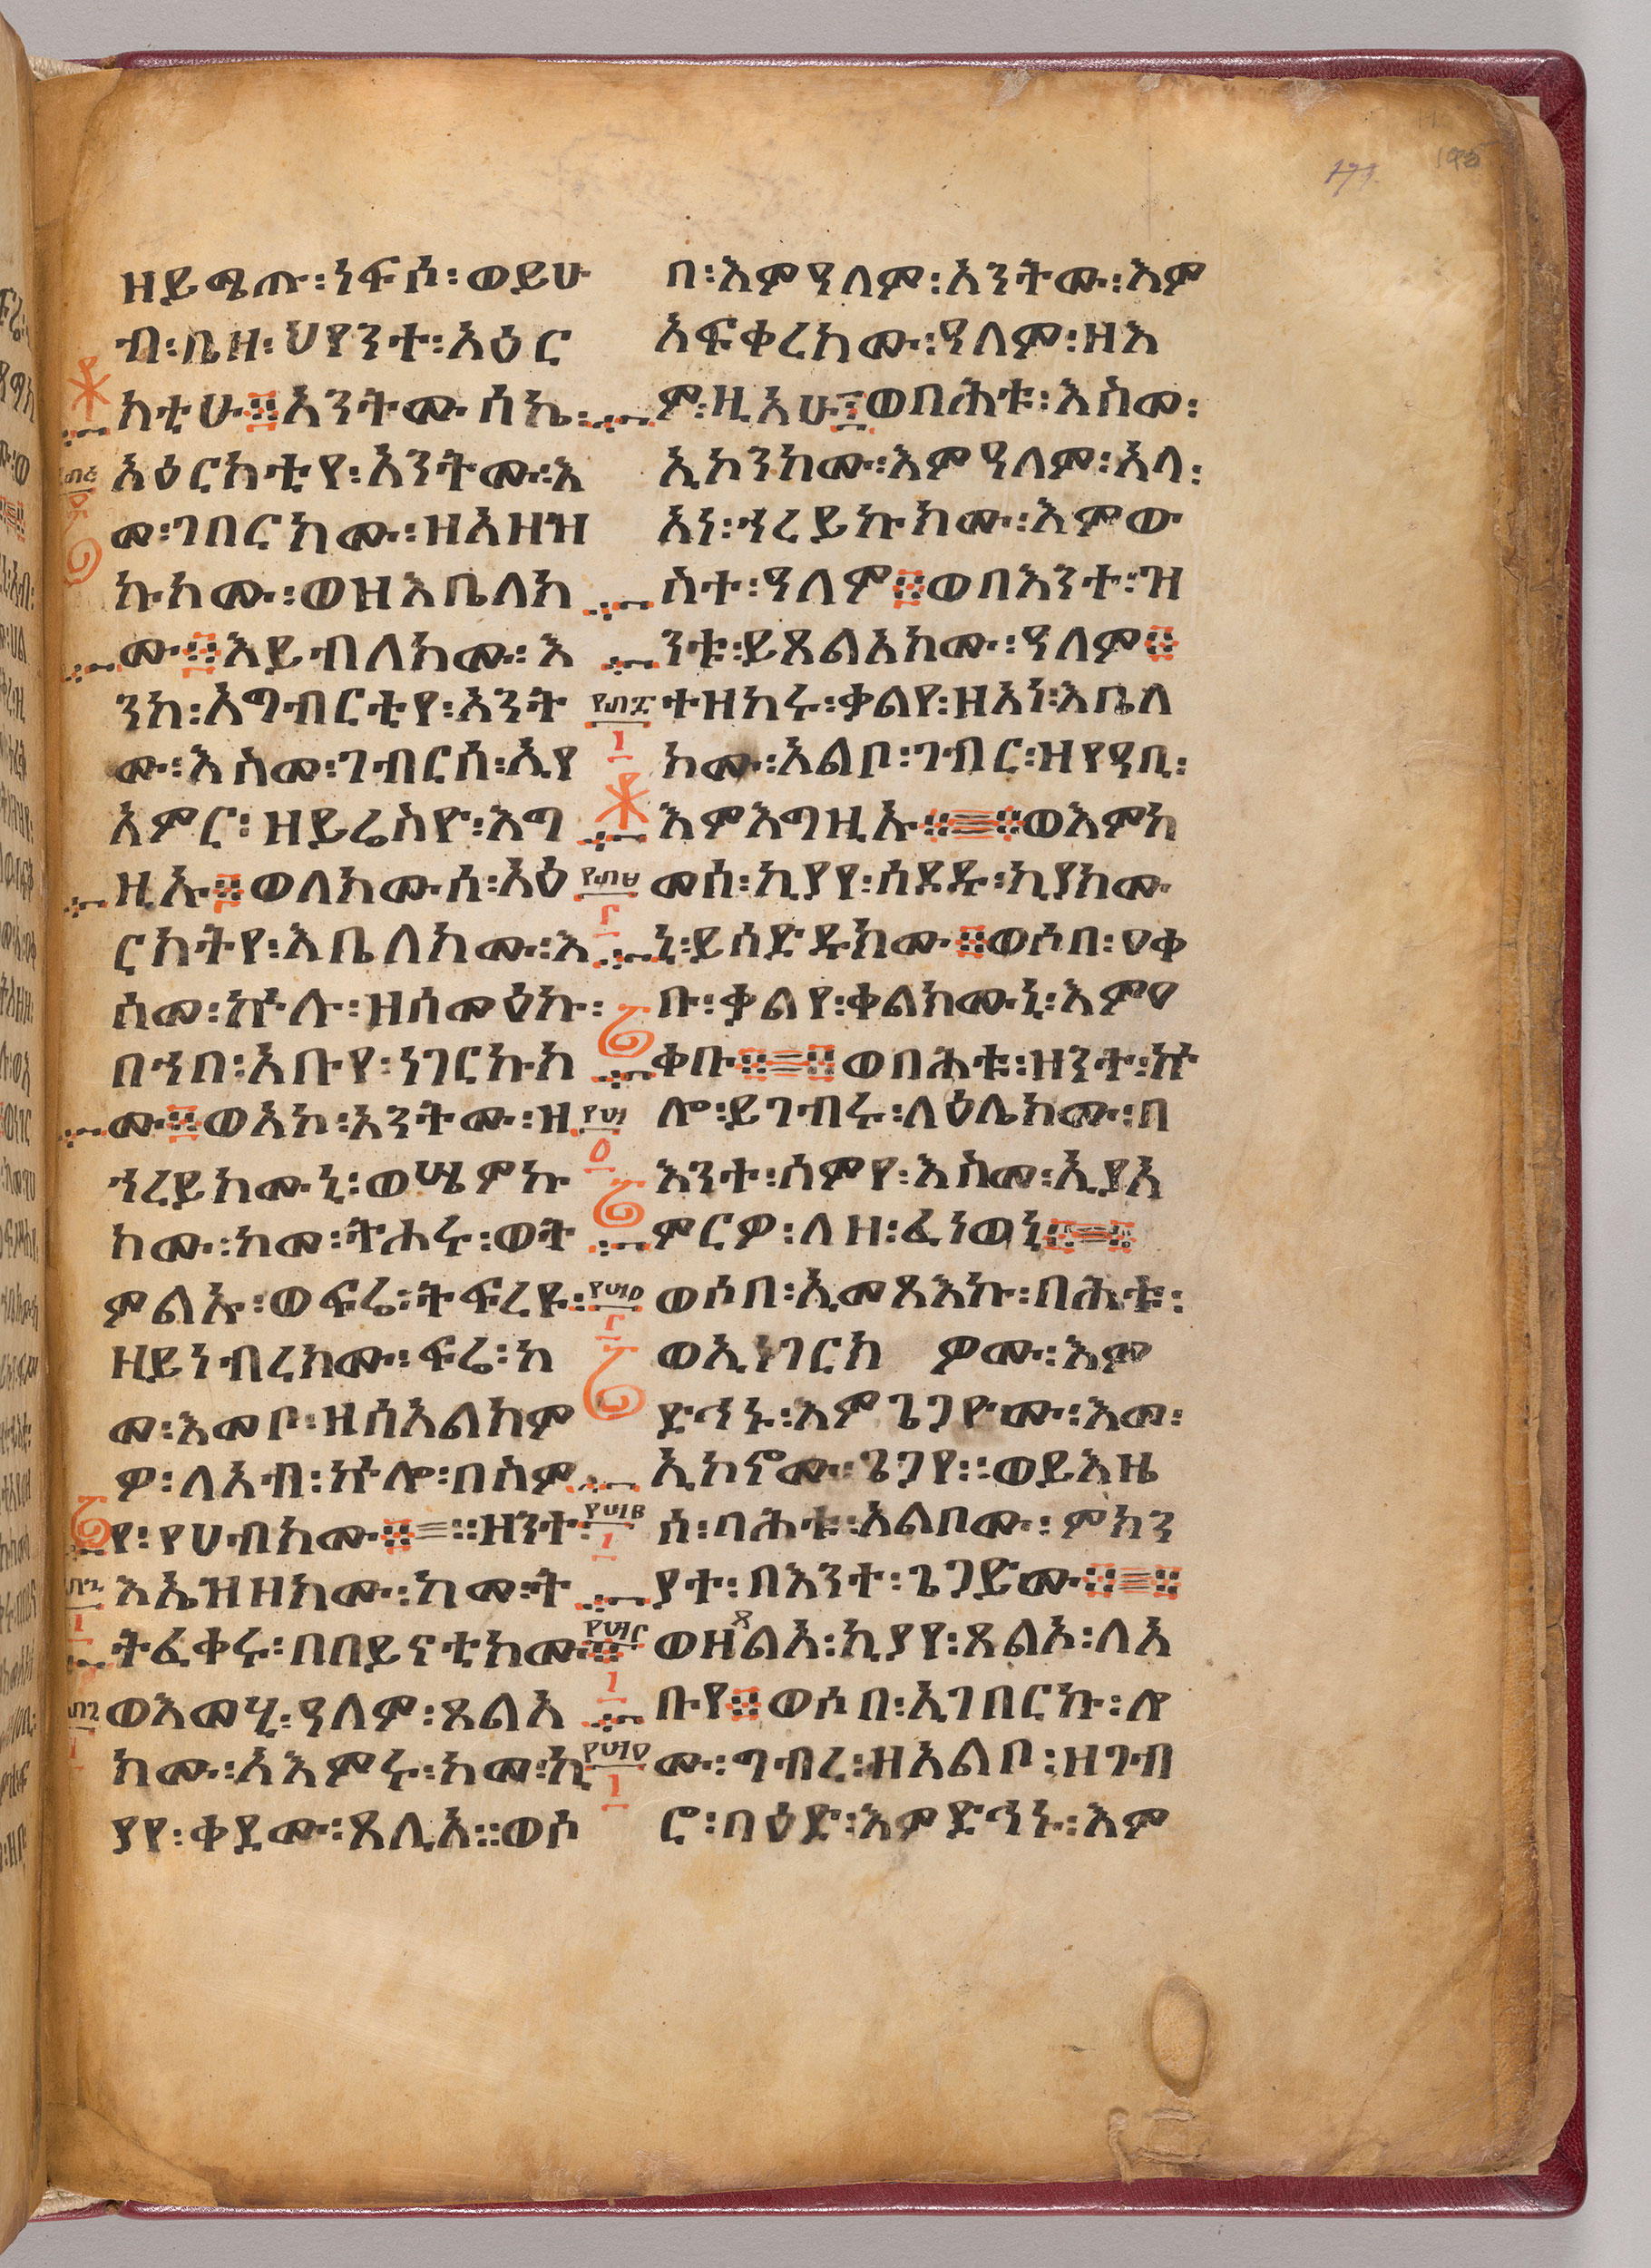 ዘይሜጡ፡ነፍሶ፡ወይሁ
ብ፡ቤዛ፡ህየንተ፡አዕር
ክቲሁ፨አንትሙሰኬ፡
አዕርክቲየ፡አንትሙ፡እ
መ፡ገበርክሙ፡ዘአዘዝ
ኩክሙ፡ወዘእቤለክ
ሙ፨እይብለክሙ፡እ
ንከ፡አግብርቲየ፡አንት
ሙ፡እስመ፡ገብርሰ፡ኢየ
አምር፡ዘይሬስዮ፡እግ
ዚኡ፨ወለክሙሰ፡አዕ
ርክትየ፡እቤለክሙ፡እ
ሰመ፡ኵሉ፡ዘሰመዕኩ፡
በኀበ፡አቡየ፡ነገርኩክ
ሙ፨ወአኮ፡አንትሙ፡ዘ
ኀረይክሙኒ፡ወሤምኩ
ክሙ፡ከመ፡ትሑሩ፡ወት
ምልኡ፡ወፍሬ፡ትፍረዩ፡
ዘይነብረክሙ፡ፍሬ፡ከ
መ፡እመቦ፡ዘሰአልክም
ዎ፡ለአብ፡ኵሎ፡በስም
የ፡የሀብክሙ፨፡፡ዘንተ፡
እኤዝዘክሙ፡ከመ፡ት
ትፈቀሩ፡በበይናቲክሙ፨
ወእመሂ፡ዓለም፡ጸልአ
ክሙ፡አእምሩ፡ከመ፡ኪ
ያየ፡ቀደሙ፡ጸሊአ፡፡ወሶ
በ፡እምዓለም፡አንትሙ፡እም
አፍቀረክሙ፡ዓለም፡ዘእ
ም፡ዚአሁ፨ወበሕቱ፡እስመ፡
ኢኮንክሙ፡እምዓለም፡አላ፡
አነ፡ኀረይኩክሙ፡እምው
ስተ፡ዓለም፨ወበእንተ፡ዝ
ንቱ፡ይጸልአክሙ፡ዓለም፨
ተዘከሩ፡ቃልየ፡ዘአነ፡እቤለ
ክሙ፡አልቦ፡ገብር፡ዘየዓቢ፡
እምእግዚኡ፨ወእምከ
መሰ፡ኪያየ፡ሰደዱ፡ኪያክሙ
ኒ፡ይሰድዱክሙ፨ወሶበ፡ዐቀ
ቡ፡ቃልየ፡ቀልክሙኒ፡እምዐ
ቀቡ፨ወበሕቱ፡ዝንተ፡ኵ
ሎ፡ይገብሩ፡ለዕሌክሙ፡በ
እንተ፡ሰምየ፡እስመ፡ኢያአ
ምርዎ፡ለዘ፡ፈነወኒ፨
ወሶበ፡ኢመጻእኩ፡በሕቱ፡
ወኢነገርክ ዎሙ፡እም
ድኅኑ፡እምጌጋዮሙ፡እመ፡
ኢኮኖሙ፡ጌጋየ፡፡ወይእዜ
ሰ፡ባሕቱ፡አልቦሙ፡ምክን
ያተ፡በእንተ፡ጌጋዮሙ፨
ወዘጸልአ፡ኪያየ፡ጸልኦ፡ለአ
ቡየ፨ወሶበ፡ኢገበርኩ፡ሎ
ሙ፡ግብረ፡ዘአልቦ፡ዘገብ
ሮ፡በዕድ፡እምድኅኑ፡እም